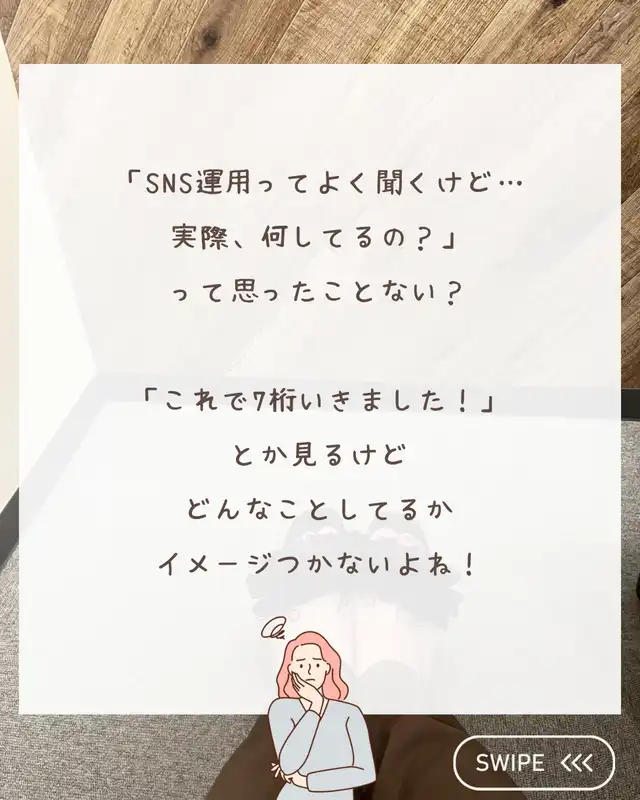 「SNS運用ってよく聞くけど…
実際、何してるの？」
って思ったことない？
「これで7桁いきました！」
とか見るけど
どんなことしてるか
イメージつかないよね！
SWIPE <<<